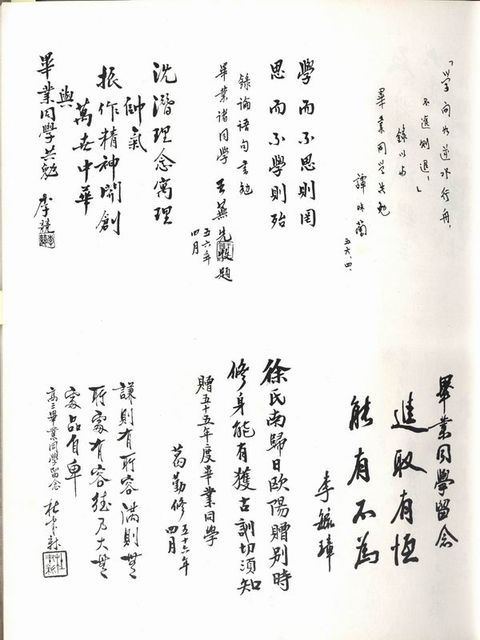 「學問如逆水行舟,
不進則退」
錄以与
畢業同学共勉
譚
五六.四.
學而不思則罔
思而不學則殆
錄論语句言勉
畢業诸同學
題
五六年
四月
沈潛理念寓理
帥氣
振作精神開創
萬世中華
與
畢業同學共勉
李
畢業同學留念
進取有恆
能有不為
李毓璋
徐氏南歸日欧陽贈别時
修身能有獲古訓切須知
贈五十五年度畢業同學
葛勤修
五十六年
四月
謙則有所容满則無
所容有容德乃大無
容品自卑
高三畢業同學留念
杜